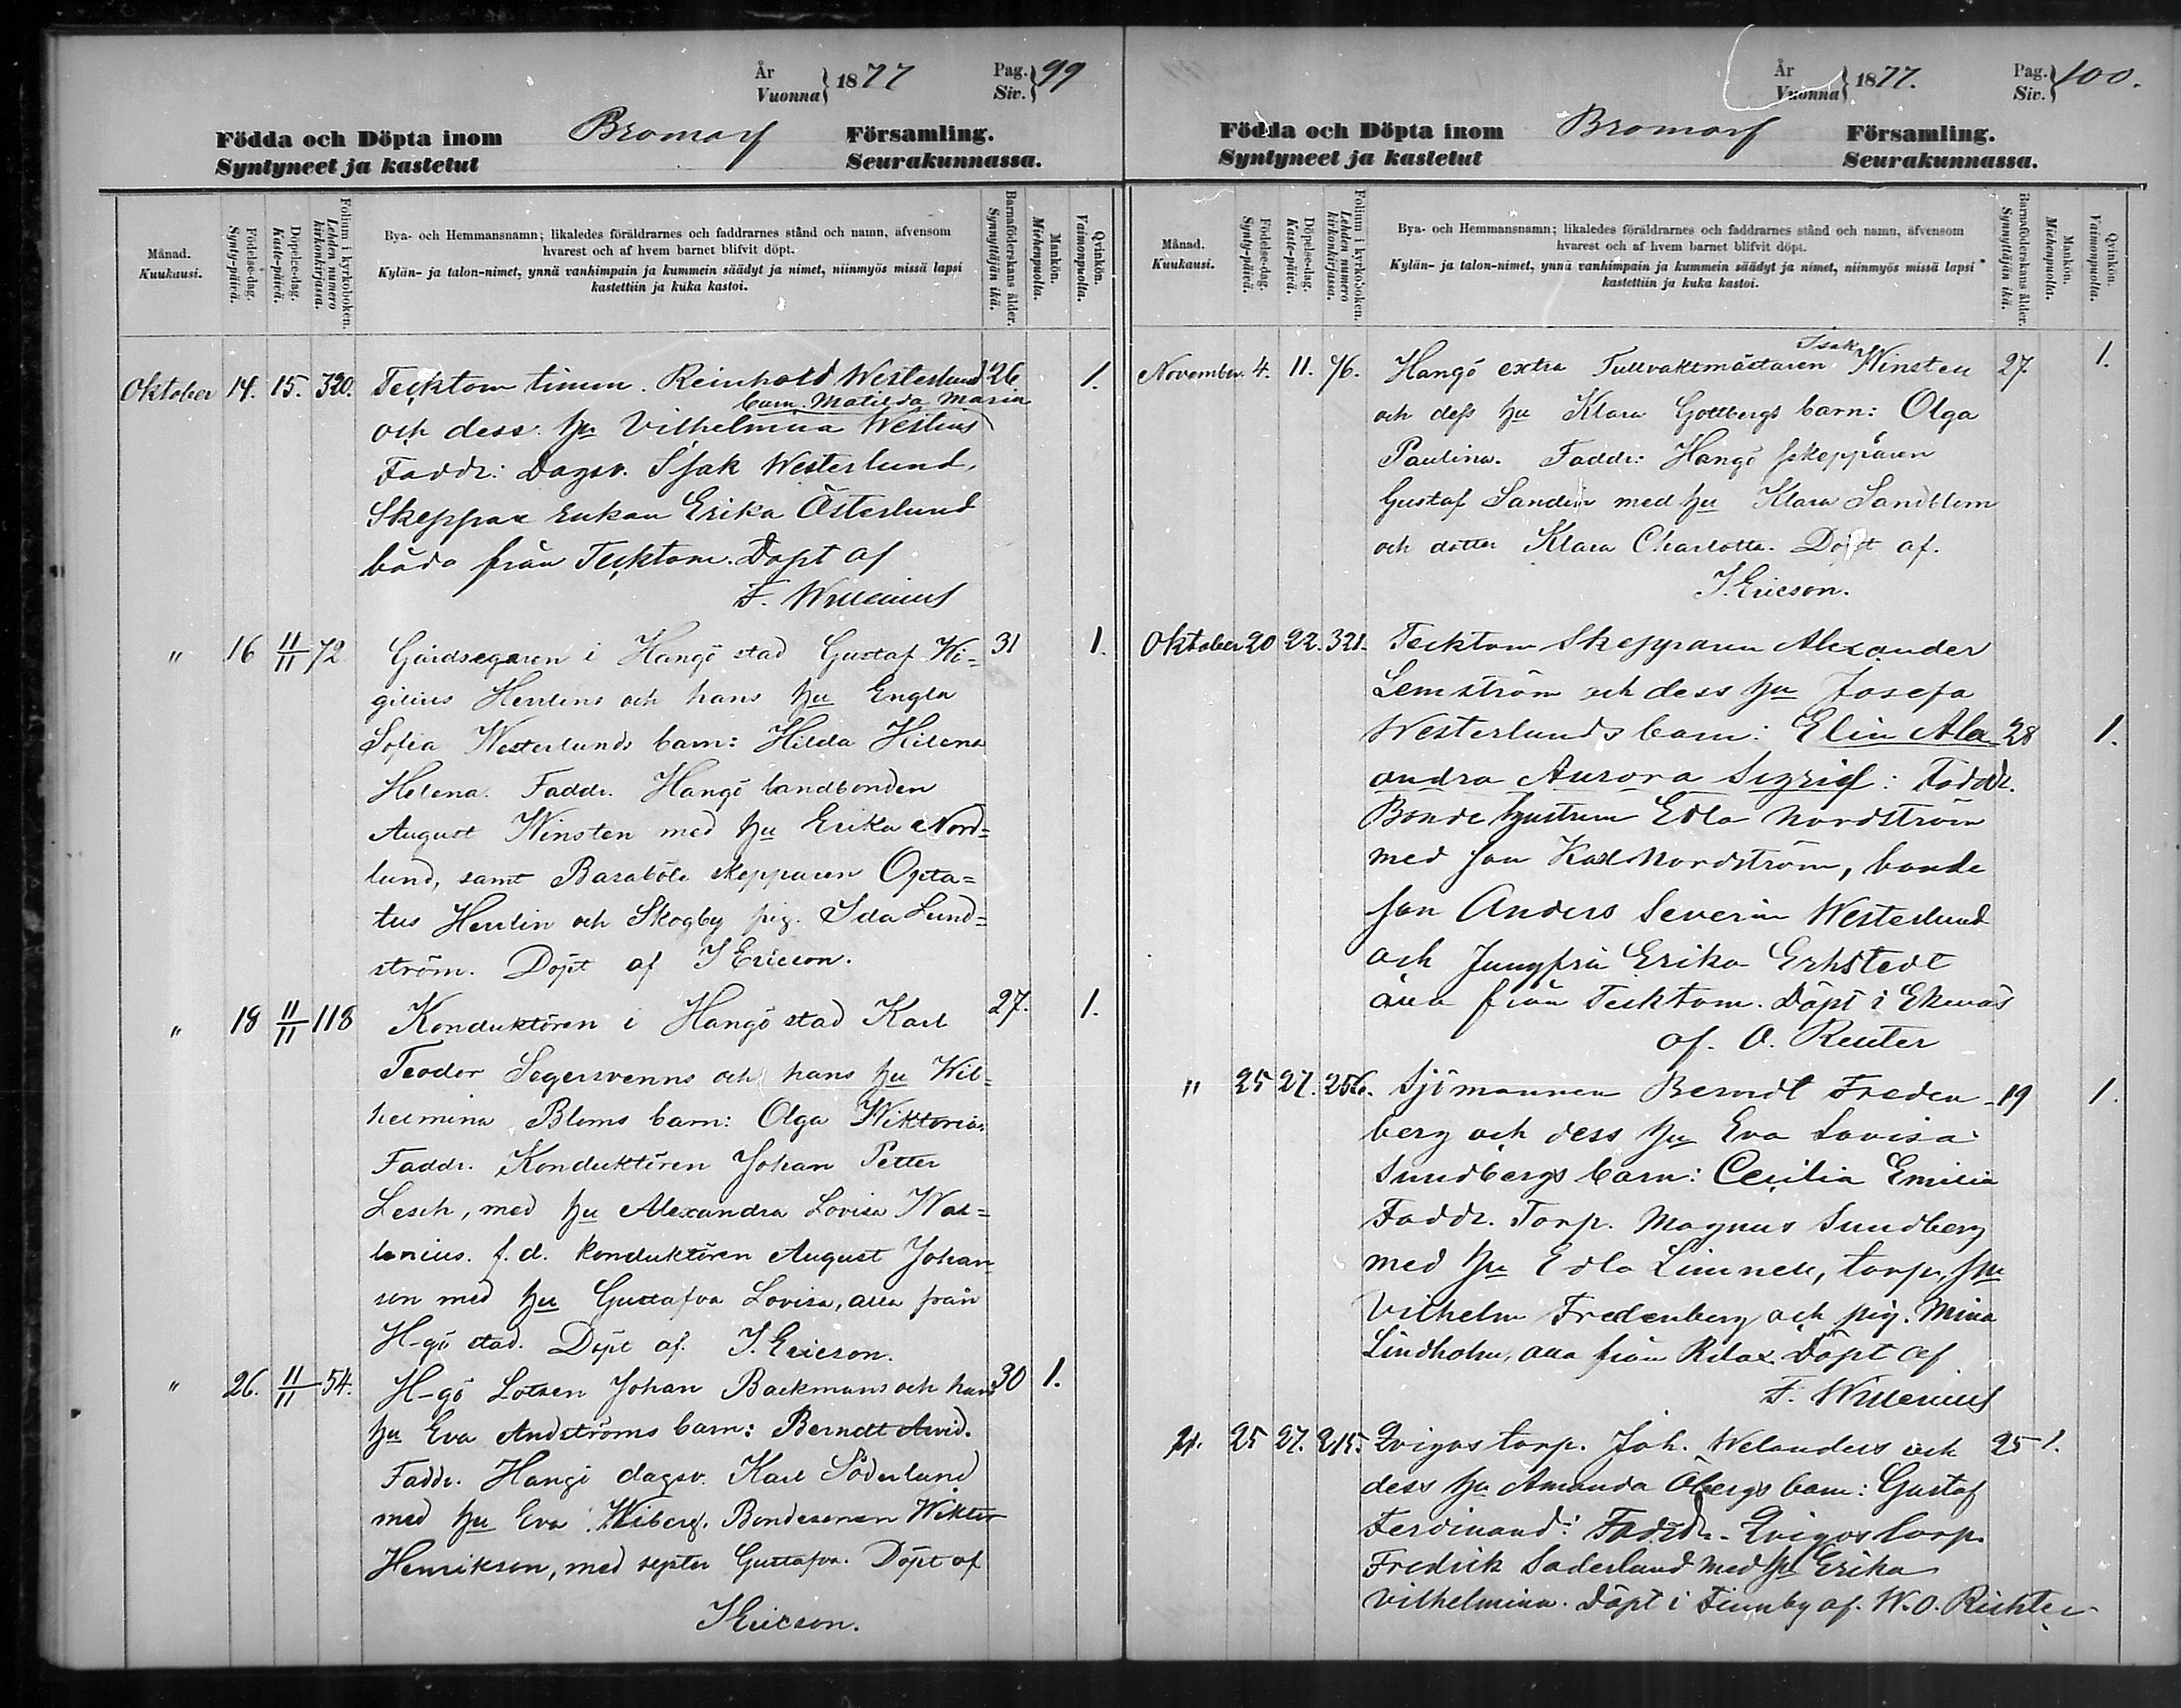 År
Vuonna } 1877
Pag.
Siv. } 99
Födda och Döpta inom Bromarf Församling.
Syntyneet ja kastetut Seurakunnassa.
Månad.
Kuukausi.
Födelse-dag.
Synty-päivä.
Döpelse-dag.
Kaste-päivä.
Folium i kyrkoboken.
Lehden numero kirkonkirjassa.
Bya- och Hemmansnamn; likaledes föräldrarnes och faddrarnes stånd och namn, äfvensom
hvarest och af hvem barnet blifvit döpt.
Kylän- ja talon-nimet, ynnä vanhimpain ja kummein säädyt ja nimet, niinmyös missä lapsi
kastettiin ja kuka kastoi.
Barnaföderskans ålder.
Synnyttäjän ikä.
Mankön.
Miehenpuolta.
Qvinkön.
Vaimonpuolta.
Oktober 14. 15. 320. Tecktom timm. Reinhold Westerlund 26 1.
barn. Matilda Maria
och dess hu Vilhelmina Westlins
Faddr: Dagsv. Isak Westerlund,
Skeppare enkan Erika Österlund
båda från Tecktom. Döpt af
F. Willenius
" 16 11/11 72 Gårdsegaren i Hangö stad Gustaf Wi- 31 1.
gilius Henlins och hans hu Engla
Sofia Westerlunds barn: Hilda Hilena
Helena. Faddr. Hangö landbonden
August Winsten med hu Erika Nord=
lund, samt Baraböle skepparen Opta=
tus Henlin och Skogby pig. Ida Lund=
ström. Döpt af I Ericson.
" 18 11/11 118 Konduktören i Hangö stad Karl 27. 1.
Teodor Segersvenns och hans hu Wil=
helmina Bloms barn: Olga Wiktoria.
Faddr. Konduktören Johan Petter
Lesch, med hu Alexandra Lovisa Wal=
lenius. f.d. konduktören August Johan
son med hu Gustafva Lovisa, alla från
H-gö stad. Döpt af I. Ericson.
" 26. 11/11 54. H-gö Lotsen Johan Backmans och hans 30 1.
hu Eva Andströms barn: Berndt Arvid.
Faddr. Hangö dagsv. Karl Söderlund
med hu Eva Wiberg. Bondesonen Wiktor
Henrikson, med syster Gustafva. Döpt af
I Ericson.
År
Vuonna } 1877.
Pag.
Siv. } 100.
Födda och Döpta inom Bromarf Församling.
Syntyneet ja kastetut Seurakunnassa.
Månad.
Kuukausi.
Födelse-dag.
Synty-päivä.
Döpelse-dag.
Kaste-päivä.
Folium i kyrkoboken.
Lehden numero kirkonkirjassa.
Bya- och Hemmansnamn; likaledes föräldrarnes och faddrarnes stånd och namn, äfvensom
hvarest och af hvem barnet blifvit döpt.
Kylän- ja talon-nimet, ynnä vanhimpain ja kummein säädyt ja nimet, niinmyös missä lapsi
kastettiin ja kuka kastoi.
Barnaföderskans ålder.
Synnyttäjän ikä.
Mankön.
Miehenpuolta.
Qvinkön.
Vaimonpuolta.
Isak
November. 4. 11. 76. Hangö extra Tullvaktmästaren Winsten 27. 1.
och dess hu Klara Gottbergs barn: Olga
Paulina. Faddr: Hangö skepparen
Gustaf Sandin med hu Klara Sandblom
och dotter Klara Charlotta. Döpt af.
I. Ericson.
Oktober 20 22. 321. Tecktom Skepparen Alexander
Lemström och dess hu Josefa
Westerlunds barn: Elin Alex 28 1.
andra Aurora Sigrid: Faddr.
Bonde hustrun Edla Nordström
med son Karl Nordström, bonde
son Anders Severin Westerlund
och Jungfru Erika Erhstedt
alla från Tecktom. Döpt i Ekenäs
af. O. Reuter
" 25 27. 256. Sjömannen Berndt Freden- 19 1.
berg och dess hu Eva Lovisa
Sundbergs barn: Cecilia Emilia
Faddr. Torp. Magnus Sundberg
med hu Edla Limnell, torp. son
Vilhelm Fredenberg och pig. Mina
Lindholm, alla från Rilax. Döpt af
F. Willenius
25 27. 215. Qvigos torp. Joh. Welanders och 25 1.
dess hu Amanda Öbergs barn: Gustaf
Ferdinand: Faddr. Qvigos torp.
Fredrik Söderlund med hu Erika
Vilhelmina. Döpt i Finnby af. W. O. Richter